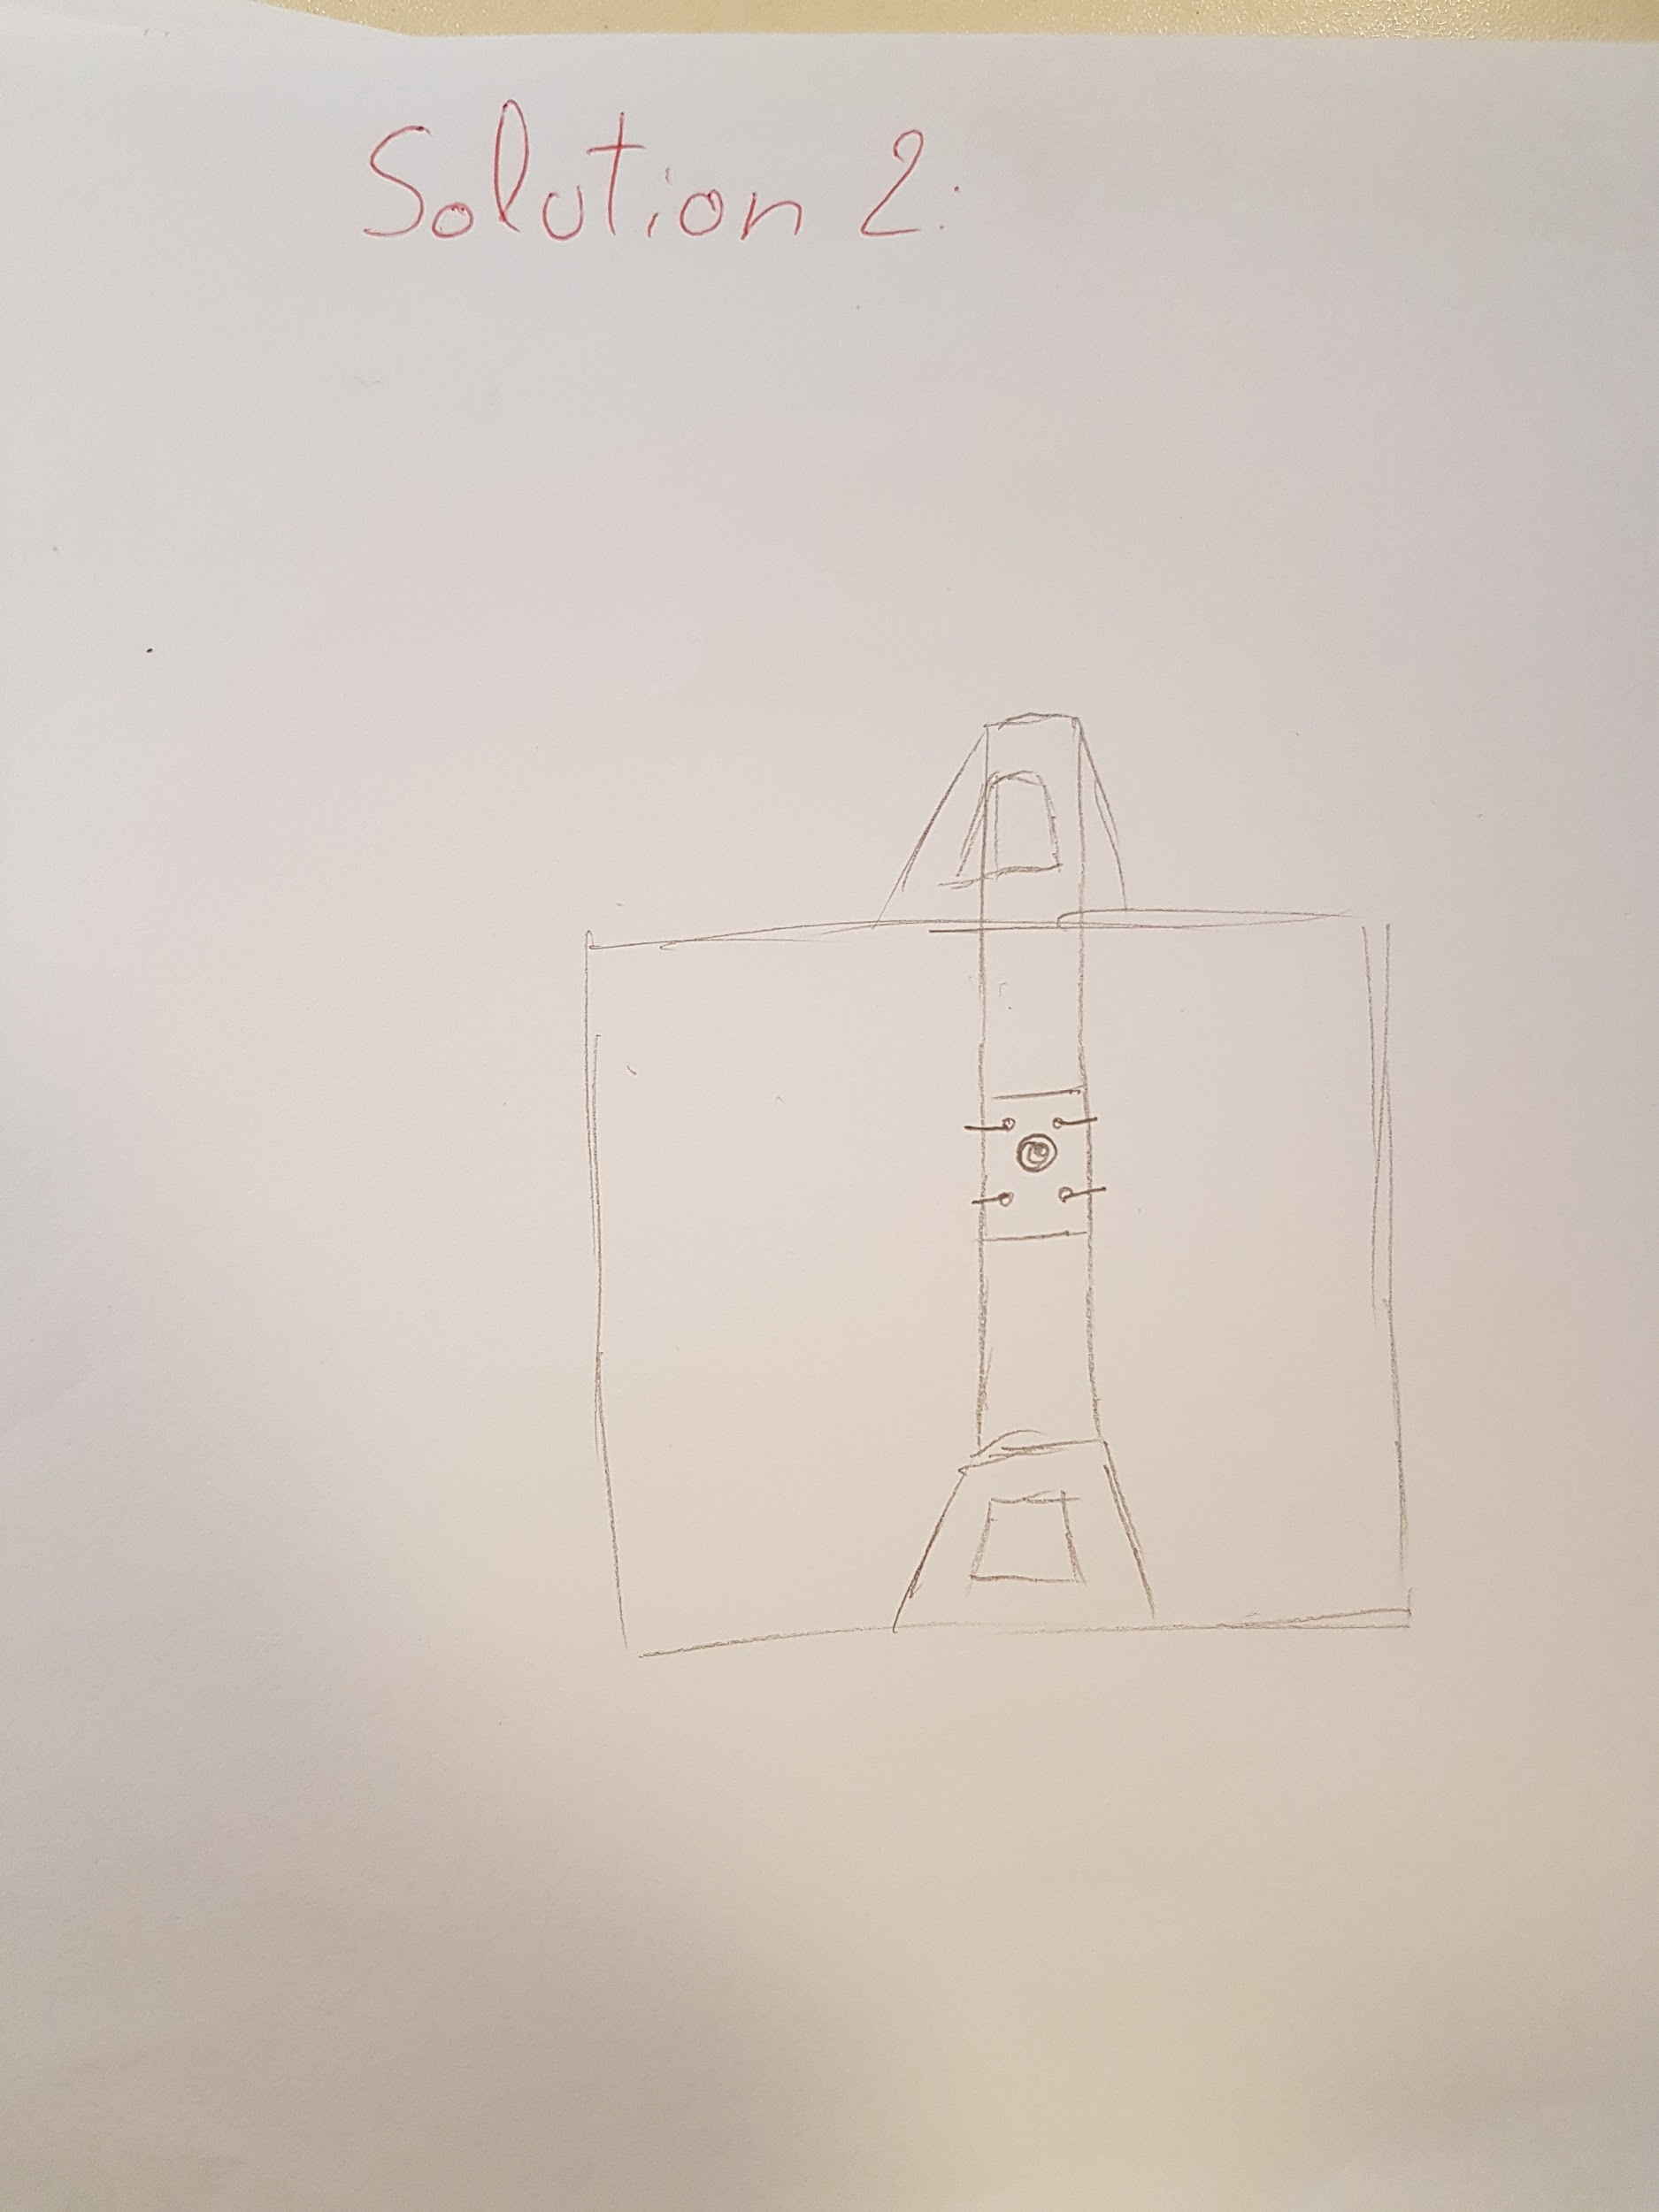 Solution 2: